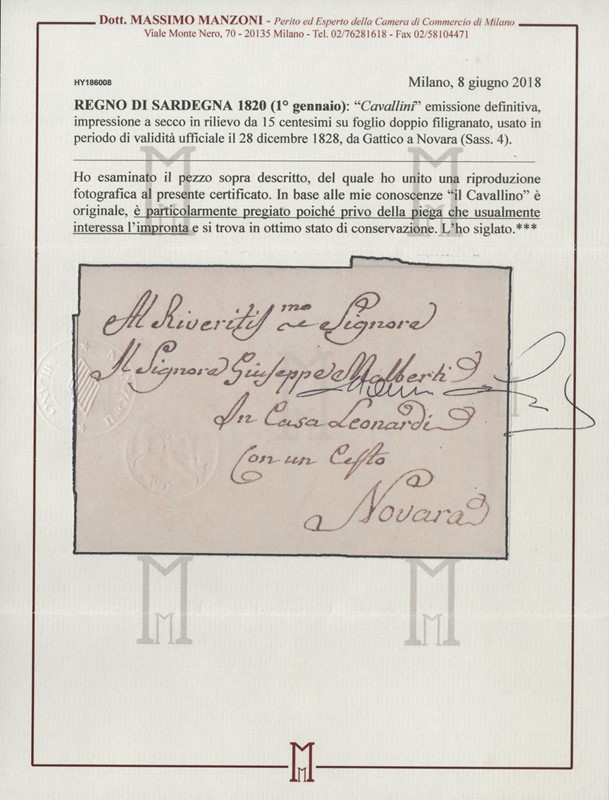 Dott. MASSIMO MANZONI - Perito ed Esperto della Camera di Commercio di Milano
Viale Monte Nero, 70 - 20135 Milano - Tel. 02/76281618 - Fax 02/58104471
HY186008
Milano, 8 giugno 2018
REGNO DI SARDEGNA 1820 (1° gennaio): “Cavallini” emissione definitiva,
impressione a secco in rilievo da 15 centesimi su foglio doppio filigranato, usato in
periodo di validità ufficiale il 28 dicembre 1828, da Gattico a Novara (Sass. 4).
Ho esaminato il pezzo sopra descritto, del quale ho unito una riproduzione
fotografica al presente certificato. In base alle mie conoscenze “il Cavallino” è
originale, è particolarmente pregiato poiché privo della piega che usualmente
interessa l’impronta e si trova in ottimo stato di conservazione. L’ho siglato.***
Al Riveritis mo e Signore
Il Signore Giuseppe Malberti
In Casa Leonardi
Con un Cesto
Novara
M